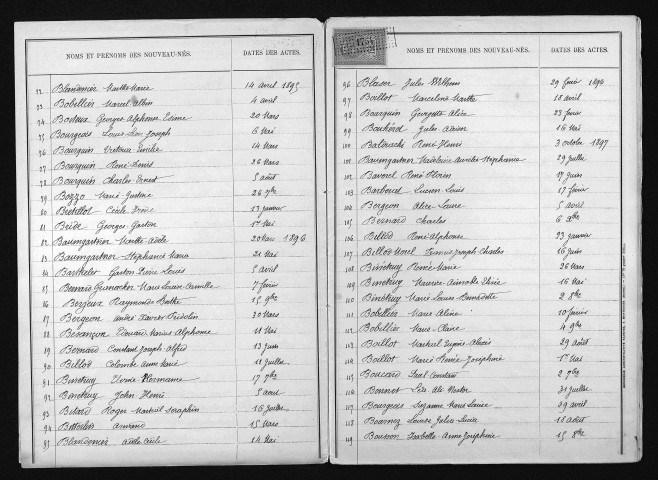 NOMS ET PRÉNOMS DES NOUVEAU-NÉS. DATES DES ACTES.
72 Blandenier Marthe Marie 14 avril 1895
73 Bobillier Marcel Albin 4 avril
74 Boiteux Georges Alphonse 20 Mars
75 Bourgeois Louis Léon Joseph 6 Mai
76 Bourquin Victoria Emilie 14 Mars
77 Bourquin René Denis 26 Mars
78 Bourquin Charles Ernest 5 août
79 Bozzo Marie Justine 26 7bre
80 Bretillot Cécile Irène 13 janvier
81 Brède Georges Gaston 1er Mai
82 Baumgartner Marthe Adèle 20 Mars 1896
83 Baumgartner Stéphanie Maria 21 Mai
84 Barthelet Gaston Pierre Louis 5 avril
85 Marie Louise Camille 7 février
86 Berjeux Raymonde Berthe 15 9bre
87 Bergeon André Xavier Fridolin 30 Mars
88 Besançon Edouard Marius Alphonse 11 Mai
89 Bernard Constant Joseph Alfred 13 juin
90 Billod Colombe Anne Marie 11 juillet
91 Binetruy Germaine 17 7bre
92 Binetruy John Henri 5 août
93 Bitard Roger Martial Séraphin 16 juillet
94 Armand 15 Mars
95 Blandenier Adèle Cécile 14 Mai
NOMS ET PRÉNOMS DES NOUVEAU-NÉS. DATES DES ACTES.
96 Blaser Jules Wilhem 29 juin 1896
97 Boillot Marceline Marthe 18 avril
98 Bourquin Georgette Alice 23 février
99 Jules 16 Mai
100 René Henri 3 octobre 1897
101 Baumgartner Stéphanie 29 juillet
102 Bavorel René Florin 17 juin
103 Barboud Lucien Louis 17 février
104 Bergeon Alice Laure 5 avril
105 Bernard Charles 6 Xbre
106 Billod René Alphonse 23 janvier
107 Billod Morel Francis Joseph Charles 16 juin
108 Binetruy Renée Marie 26 Mars
109 Binetruy Maurice 16 Mai
110 Binetruy Marie Louise 2 8bre
111 Bobillier Marie Aline 10 février
112 Bobillier Marie 4 9bre
113 Boillot Martial Eugène Alexis 29 août
114 Boillot Marie Renée Joséphine 1er Mai
115 Boucard Paul Constant 2 7bre
116 Bonnet Ali Nestor 31 juillet
117 Bourgeois Suzanne Marie Louise 29 avril
118 Bournez Louise Julia Lucie 18 août
119 Isabelle Anne Joséphine 15 8bre